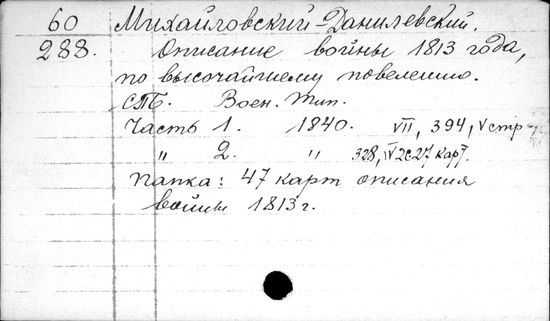 60 Михайловский-Данилевский.
288. Описание войны 1813 года,
по высочайшему повелению.
СПБ. Воен. Тип.
Часть 1. 1840. VII, 394, V стр.
„ 2. „ 328, IV 2 с 27 карт.
Папка: 47 карт описания
войны 1813 г.